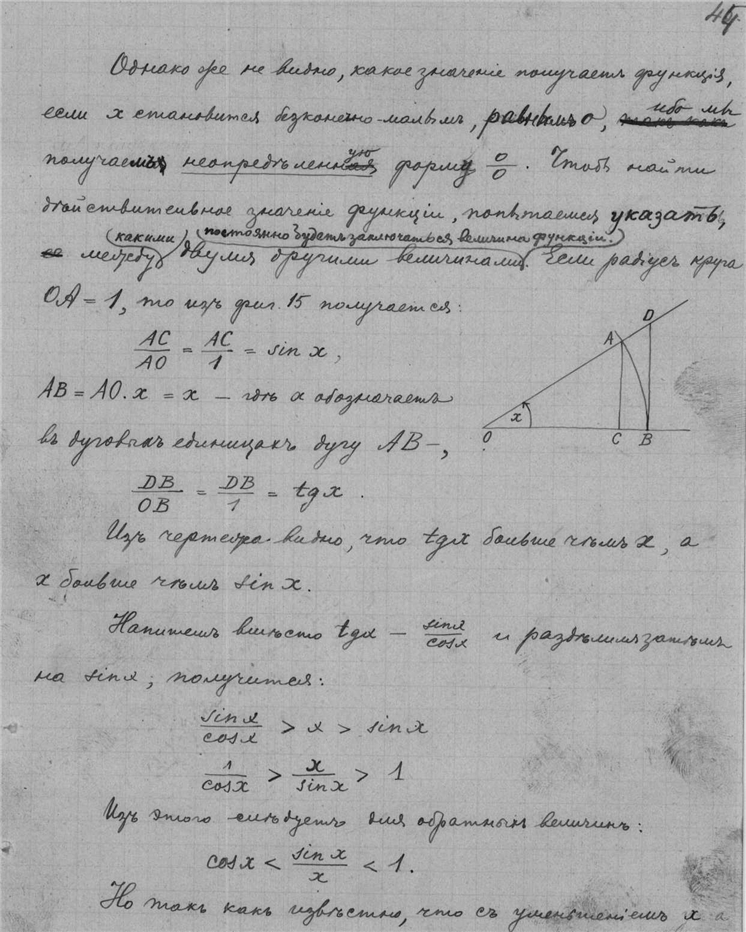 44
Однако же не видно, какое значеніе получаетъ функція,
если x становится безконечно-малымъ, равнымъ 0, ибо мы
получаемъ неопредѣленную форму 0/0. Чтобъ найти
дѣйствительное значеніе функціи, попытаемся указать,
какими постоянно будетъ заключаться величина функціи.
между двумя другими величинами. Если радіусъ круга
OA = 1, то изъ фиг. 15 получается:
AC/AO = AC/1 = sin x,
AB = AO. x = x — гдѣ x обозначаетъ
въ дуговыхъ единицахъ дугу AB —,
DB/OB = DB/1 = tg x.
A D x O C B
Изъ чертежа видно, что tg x больше чѣмъ x, а
x больше чѣмъ sin x.
Напишемъ вмѣсто tg x — sin x/cos x и раздѣлимъ затѣмъ
на sin x, получится:
sin x/cos x > x > sin x
1/cos x > x/sin x > 1
Изъ этого слѣдуетъ для обратныхъ величинъ:
cos x < sin x/x < 1.
Но такъ какъ извѣстно, что съ уменьшеніемъ x а